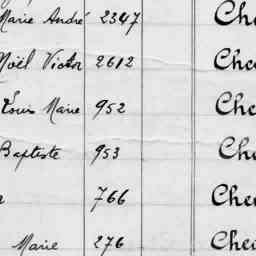 Marie André 2347 Che
Noël Victor 2612 Che
Louis Marie 952 Che
Baptiste 953 Che
766 Che
Marie 276 Che